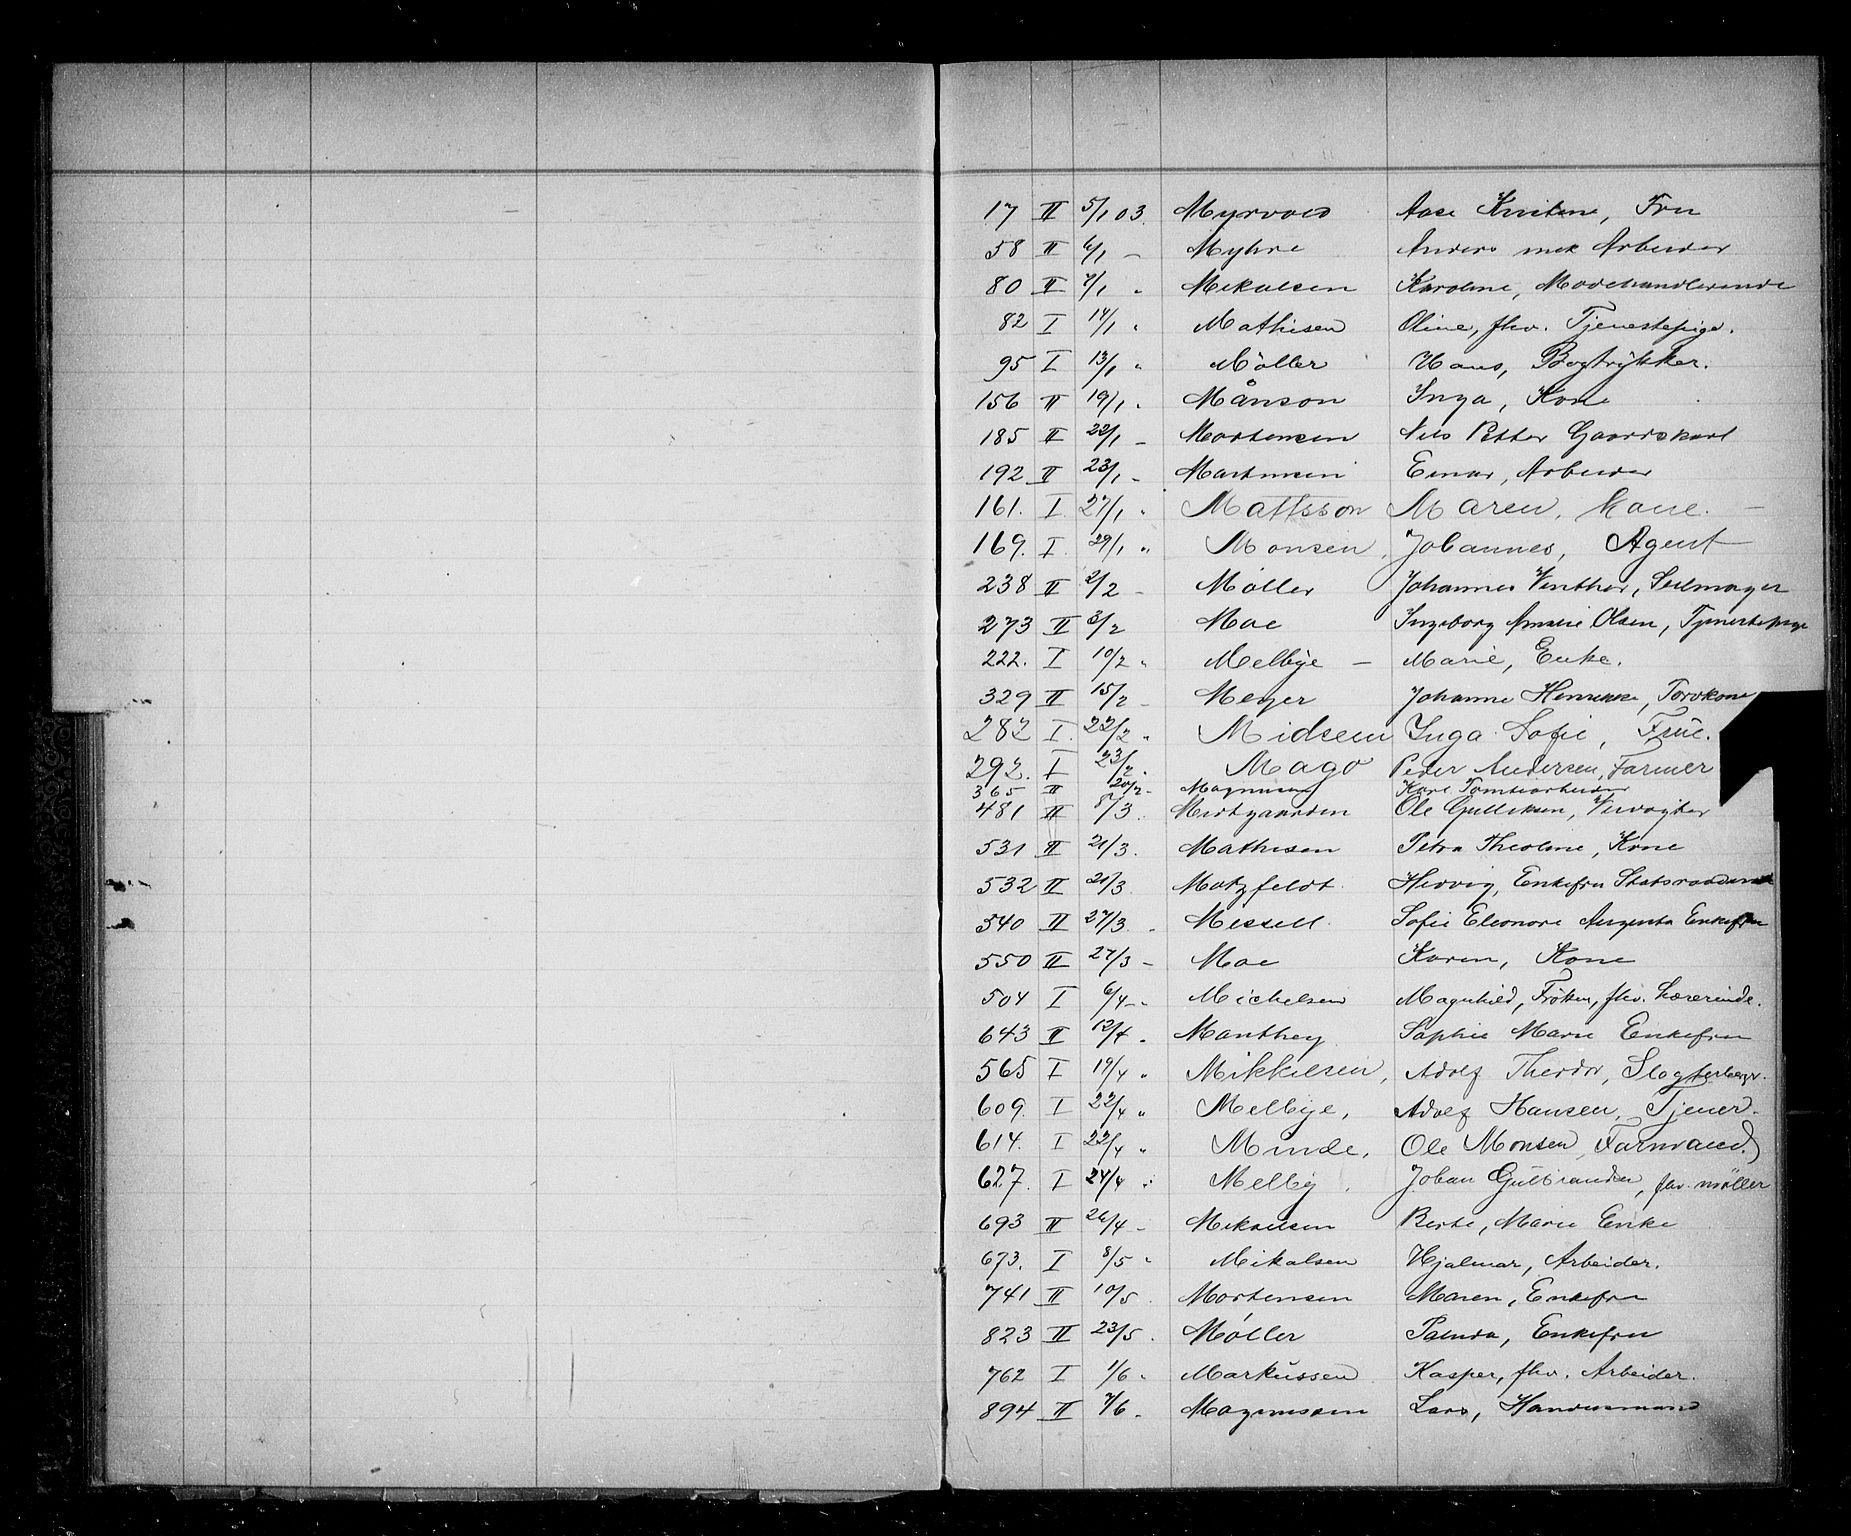 17 II 5/1 03. Myrvold Aase Kristine, Fru
58 II 6/1 - Myhre Anders mek Arbeider
80 II 7/1 " Mikalsen Karoline, Modehandlerinde
82 I 14/1 " Mathisen Oline, fhv. Tjenestepige.
95 I 13/1 " Möller Hans, Bogtrykker.
156 II 19/1 . Månson Inga, Kone
185 II 22/1 - Mortensen Nils Petter Gaardskarl
192 II 23/1 - Martinsen Einar, Arbeider
161. I 27/1 " Mattsson Maren, Kone. -
169. I. 29/1 " Monsen, Johannes, Agent
238 II 2/2 - Møller Johannes Winther, Seilmager
273 II 3/2 Moe Ingeborg Amalie Olsen, Tjenestepige
222. I 10/2 " Melbye - Marie, Enke.
329 II 15/2 - Meyer Johanne Henrikke, Torvkone
282 I. 22/2 " Midseem Inga Sofie, Frue.
292. I 23/2 . Mago Peder Andersen, Farmer
365 II 20/2 - Magnusen Karl Tomtearbeider
481 II 8/3 . Midtgaarden Ole Gulliksen, Veivogter
531 II 21/3. Mathisen Petra Theoline, Kone
532 II 21/3 Motzfeldt. Hedvig, Enkefru Statsraadinde
540 II 27/3 . Messell. Sofie Eleonore Augusta Enkefru
550 II 27/3 - Moe Karen, Kone
504 I 6/4 - " Michelsen Magnhild, Frøken, fhv. Lærerinde.
643 II 12/4 . Manthey Sophie Marie Enkefru
565 I 19/4 " Mikkelsen, Adolf Theodor, Slagterborgr.
609. I 22/4 " Melbye, Adolf Hansen, Tjener.
614. I 22/4 " Minde, Ole Monsen, Farmand.)
627. I 24/4 " Melby . Johan Gulbrandsen, fhv. møller
693 II 26/4 - Mikalsen Berte, Marie Enke
673. I 8/5 " Mikalsen Hjalmar, Arbeider.
741 II 10/5 . Mortensen Maren, Enkefru
823 II 23/5 . Møller Palmda, Enkefru
762 I 1/6 " Markussen Kasper, fhv. Arbeider.
894 II 7/6 . Magnussen Lars, Handelsmand